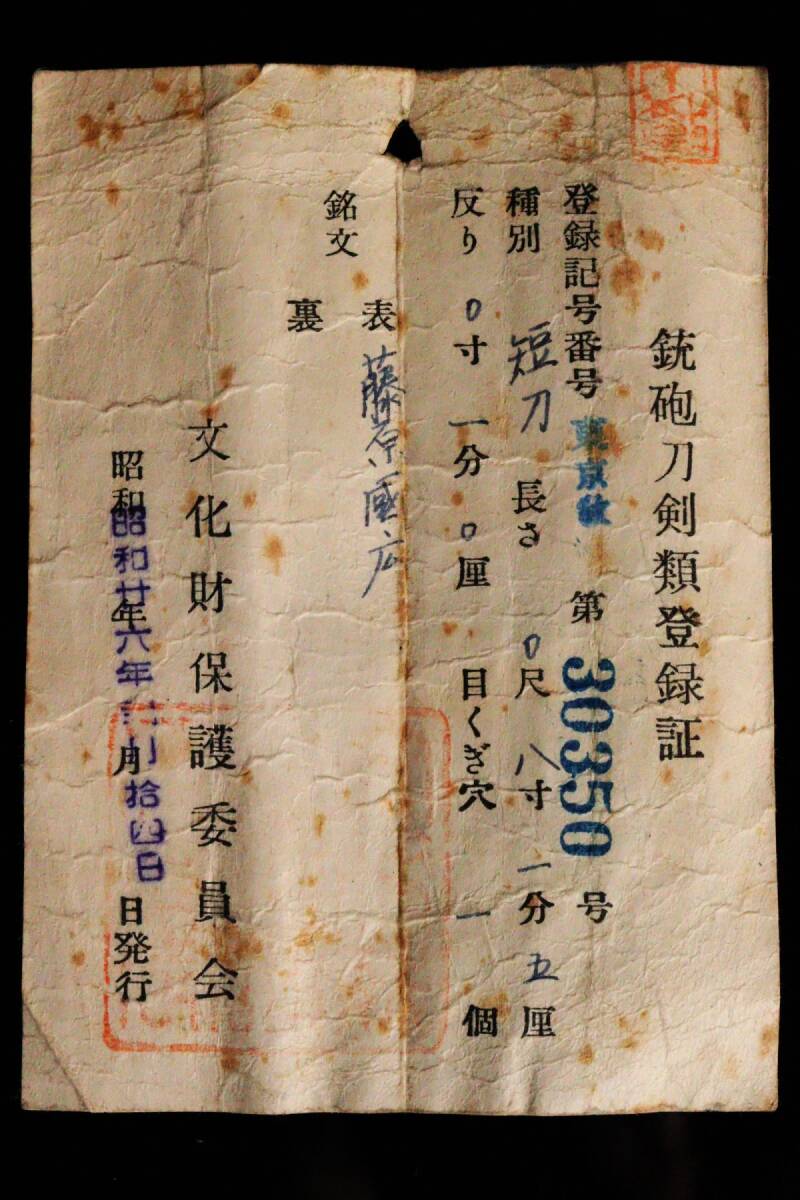 銃砲刀剣類登録証
登録記号番号 東京 第 30350 号
種別 短刀 長さ 0尺 八寸 一分 五厘
反り 0寸 一分 0厘 目くぎ穴 一 個
銘文 表 藤原國広
裏
文化財保護委員会
昭和 年 月 日発行
昭和廿六年 月拾四日